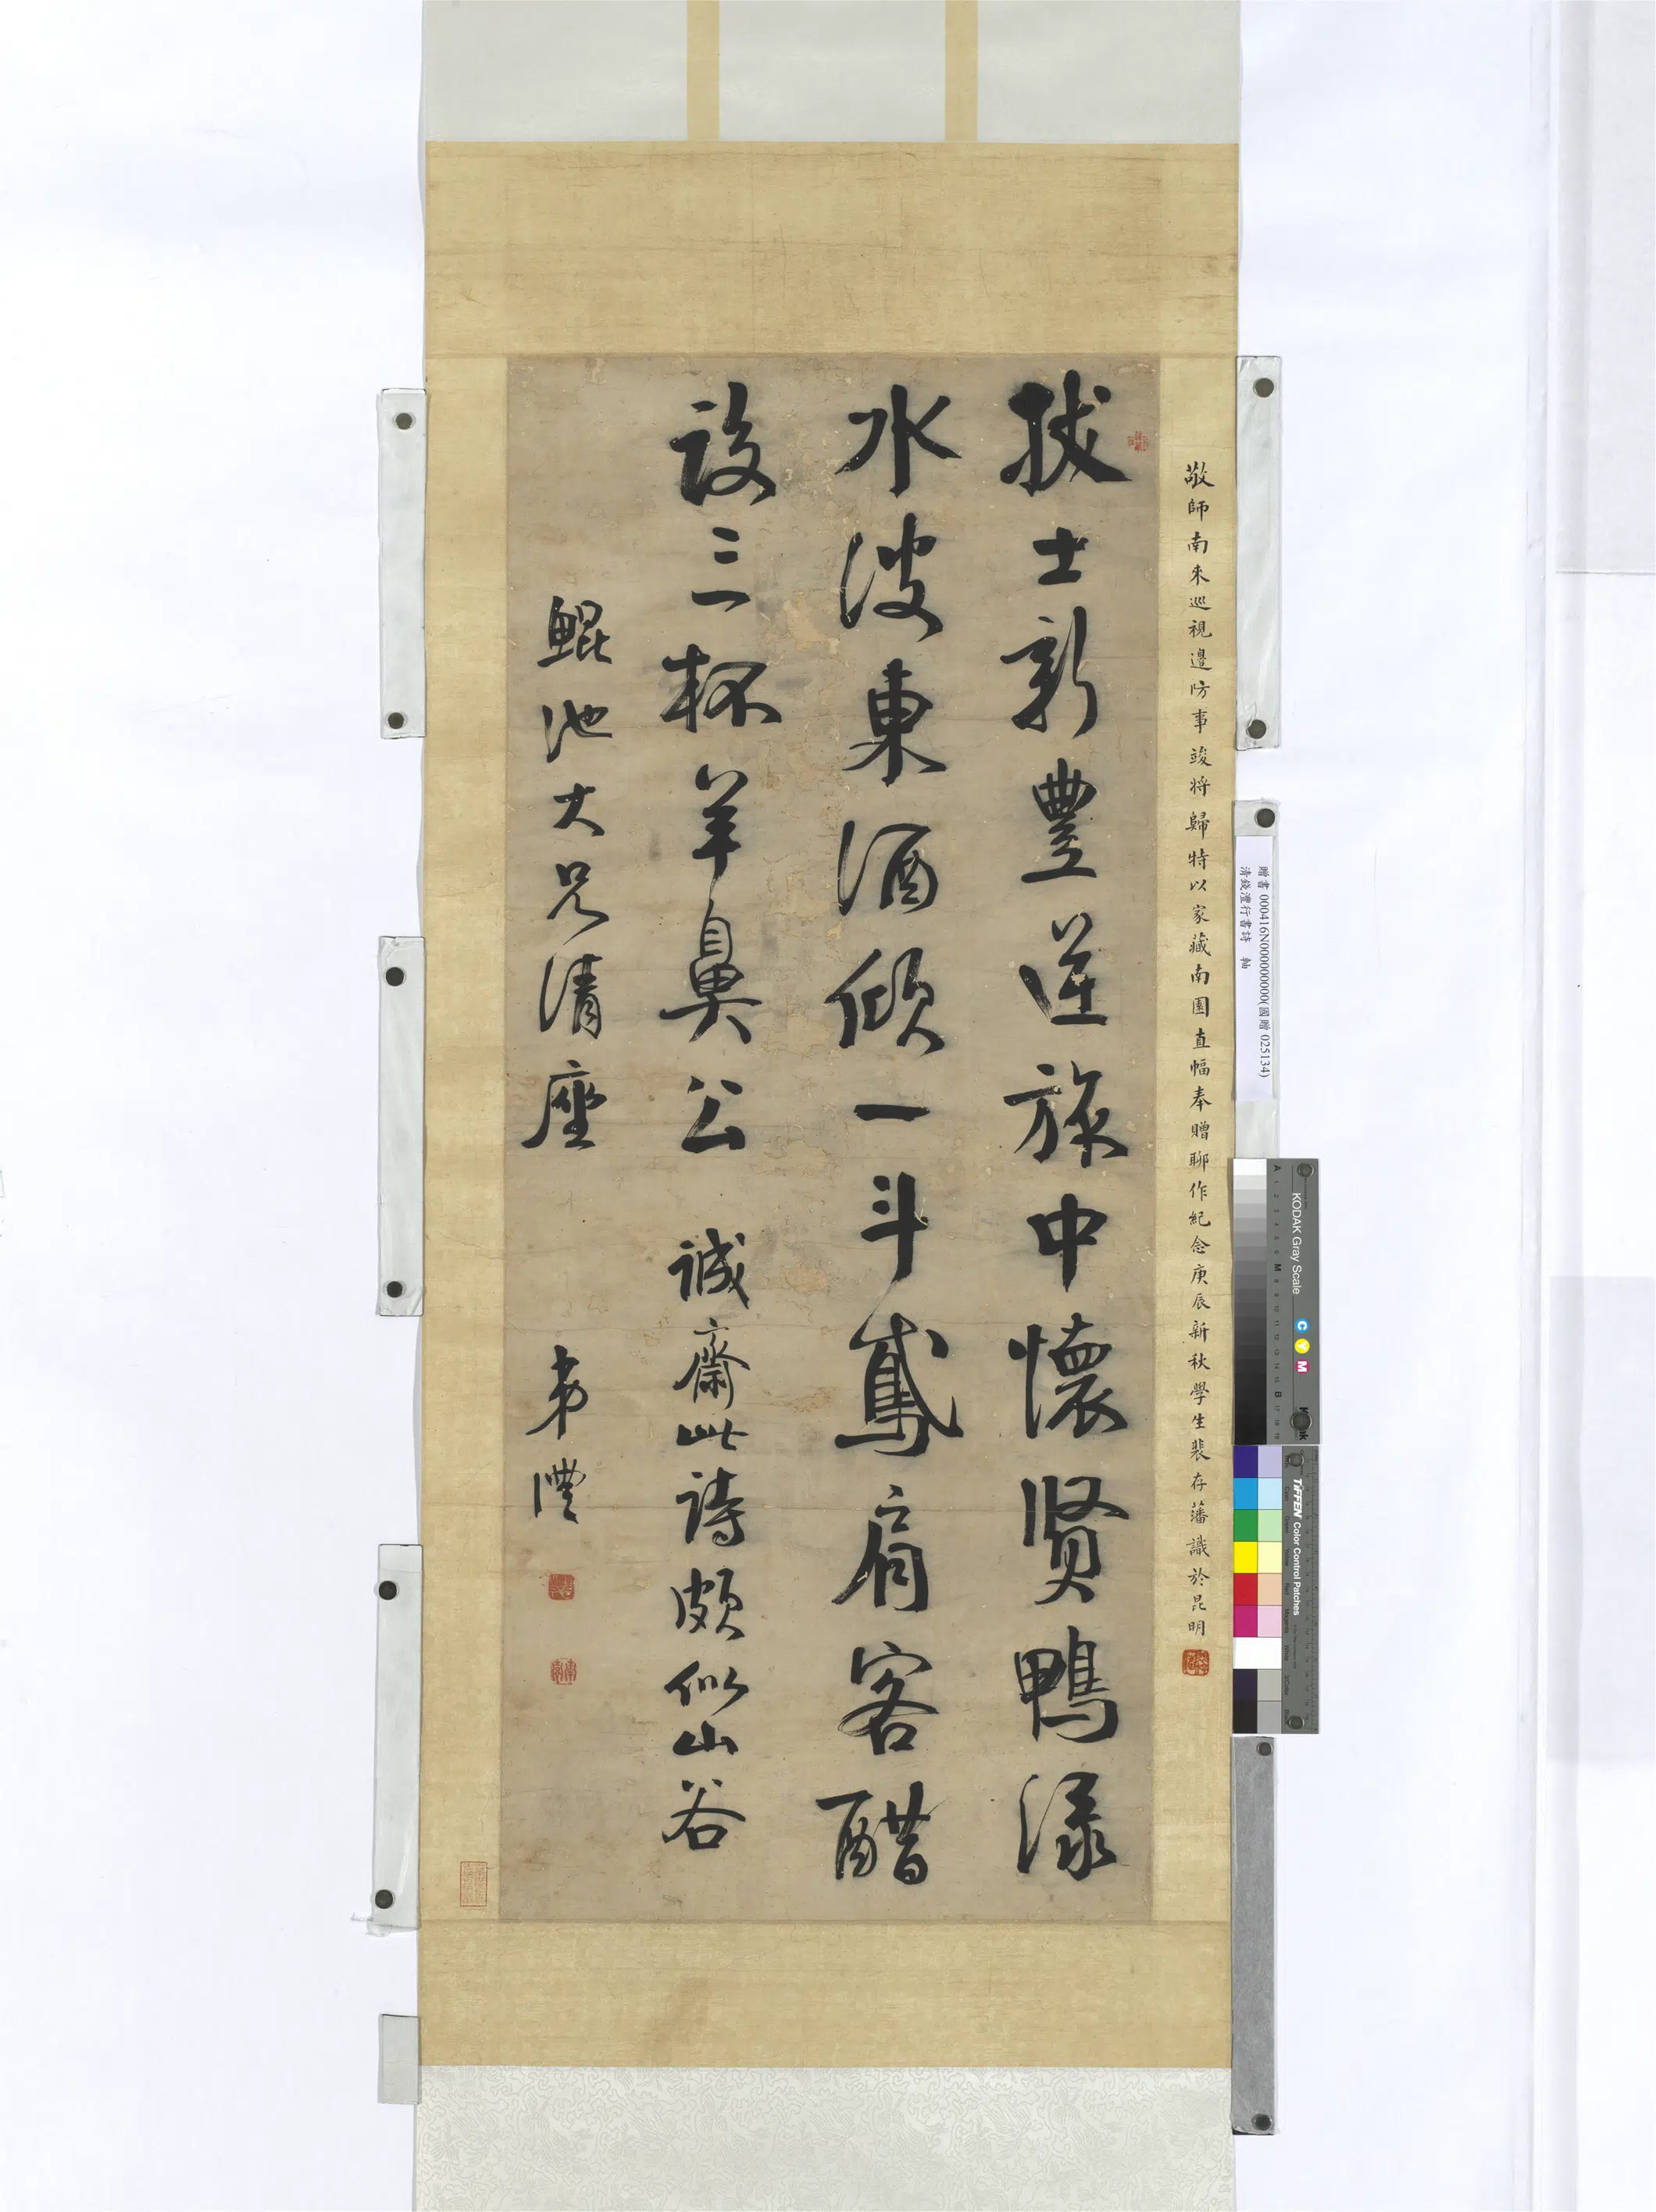 拔士新豐逆旅中懷賢鴨淥
水波東酒傾一斗鳶肩客醋
設三杯羊鼻公 誠齋此詩頗似山谷
鯤池大兄清座 弟灃
敬師南來巡視邊防事竣將歸特以家藏南園直幅奉贈聊作紀念庚辰新秋學生裴存藩識於昆明
贈書 000416N000000000(國贈 025134)
清錢灃行書詩 軸
KODAK Gray Scale
C Y M
A 1 2 3 4 5 6 M 8 9 10 11 12 13 14 15 B 17 18 19
TIFFEN Color Control Patches